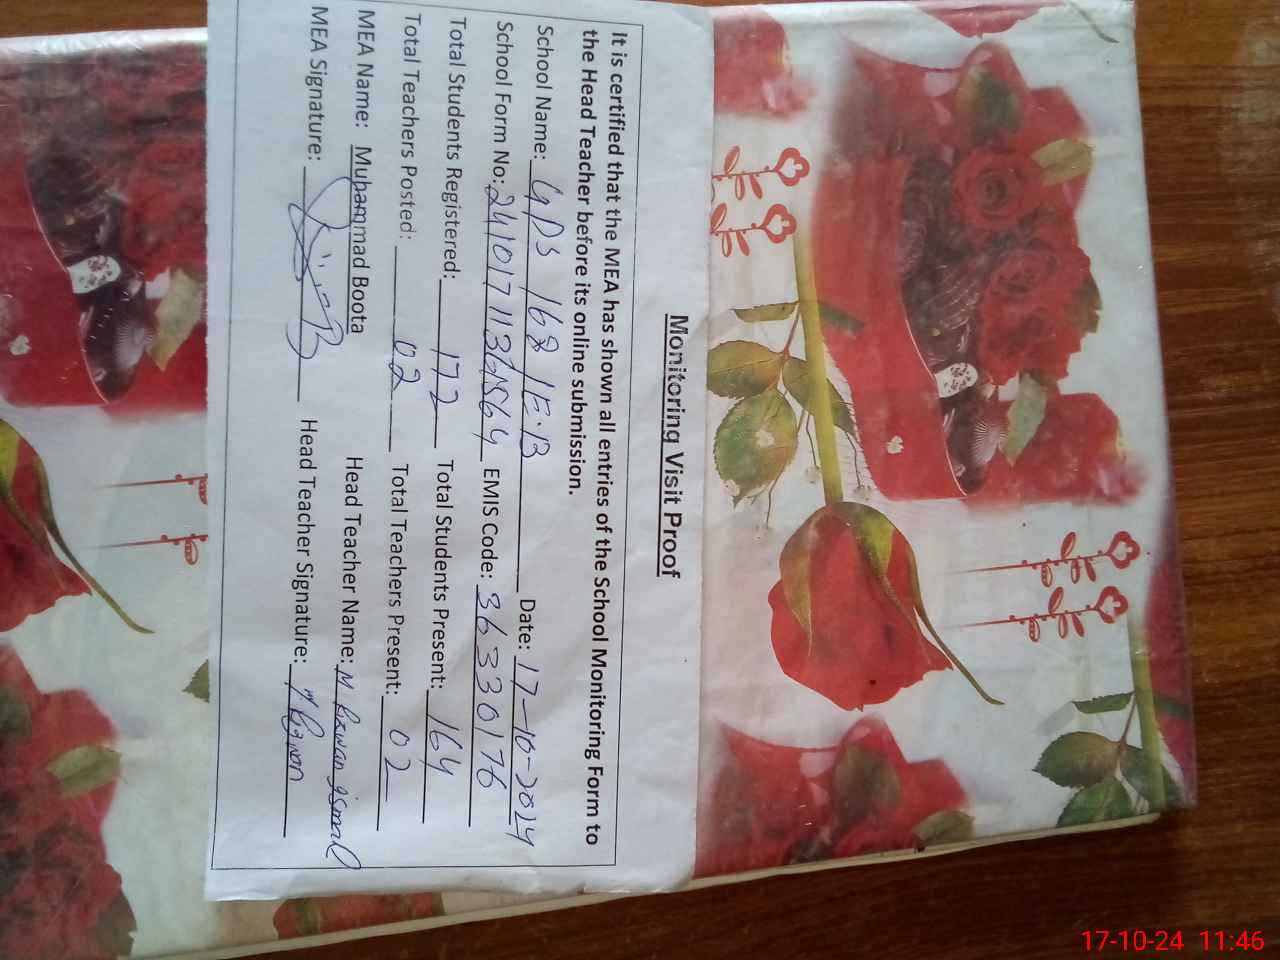 Monitoring Visit Proof
It is certified that the MEA has shown all entries of the School Monitoring Form to
the Head Teacher before its online submission.
School Name: GPS 168/E.B Date: 17-10-2024
School Form No: EMIS Code: 36330176
Total Students Registered: 172 Total Students Present: 164
Total Teachers Posted: 02 Total Teachers Present: 02
MEA Name: Muhammad Boota Head Teacher Name: M Rizwan ismail
MEA Signature: Head Teacher Signature: M Rizwan
17-10-24 11:46